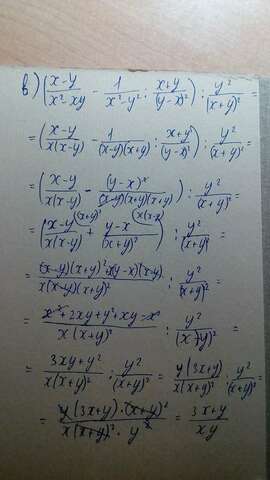 в) ( (x-y)/(x²-xy) - 1/(x²-y²) : (x+y)/(y-x)² ) : y²/(x+y)² =
= ( (x-y)/(x(x-y)) - 1/((x-y)(x+y)) : (x+y)/(y-x)² ) : y²/(x+y)² =
= ( (x-y)/(x(x-y)) - (y-x)²/((x-y)(x+y)(x+y)) ) : y²/(x+y)² =
= ( (x-y)/(x(x-y)) ^(x+y)² + (y-x)/(x+y)² ^x(x-y) ) : y²/(x+y)² =
= ((x-y)(x+y)²+x(y-x)(x-y))/(x(x-y)(x+y)²) : y²/(x+y)² =
= (x²+2xy+y²+xy-x²)/(x(x+y)²) : y²/(x+y)² =
= (3xy+y²)/(x(x+y)²) : y²/(x+y)² = y(3x+y)/(x(x+y)²) : y²/(x+y)² =
= (y(3x+y)·(x+y)²)/(x(x+y)²·y²) = (3x+y)/(xy)